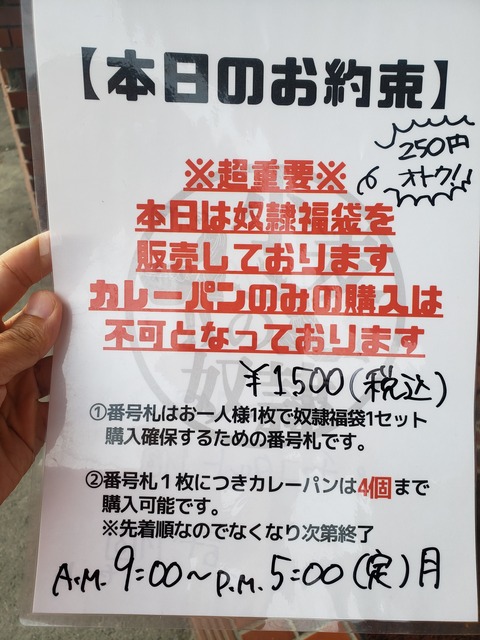 【本日のお約束】
250円
オトク!!
※超重要※
本日は奴隷福袋を
販売しております
カレーパンのみの購入は
不可となっております
¥1500(税込)
①番号札はお一人様1枚で奴隷福袋1セット
購入確保するための番号札です。
②番号札1枚につきカレーパンは4個まで
購入可能です。
※先着順なのでなくなり次第終了
A.M. 9:00~P.M. 5:00(定)月